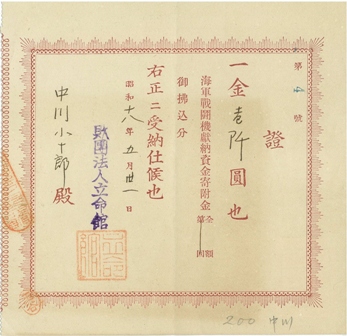 第 號
證
一金壱阡圓也
海軍戰鬪機獻納資金寄附金 全額
御拂込分
右正ニ受納仕候也
昭和十八年五月卅一日
財團法人立命館
中川小十郎殿
200 中川